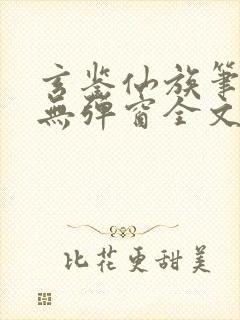 玄鉴仙族筆
無彈窗全文
比花更甜美